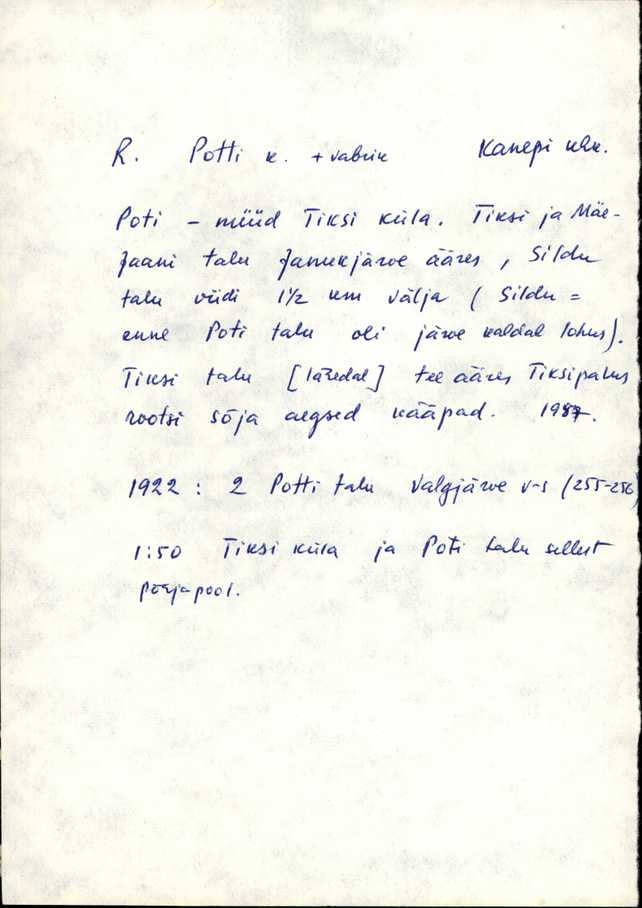 R. Potti k. + vabrik Kanepi khk.
Poti – nüüd Tiksi küla. Tiksi ja Mäe-
Jaani talu Janukjärve ääres, Sildu
talu viidi 1½ km välja ( Sildu =
enne Poti talu oli järve kaldal lohus).
Tiksi talu [lähedal] tee ääres Tiksipalus
rootsi sõja aegsed kääpad. 1987.
1922 : 2 Potti talu Valgjärve v-s (255-256)
1:50 Tiksi küla ja Poti talu sellest
põhjapool.